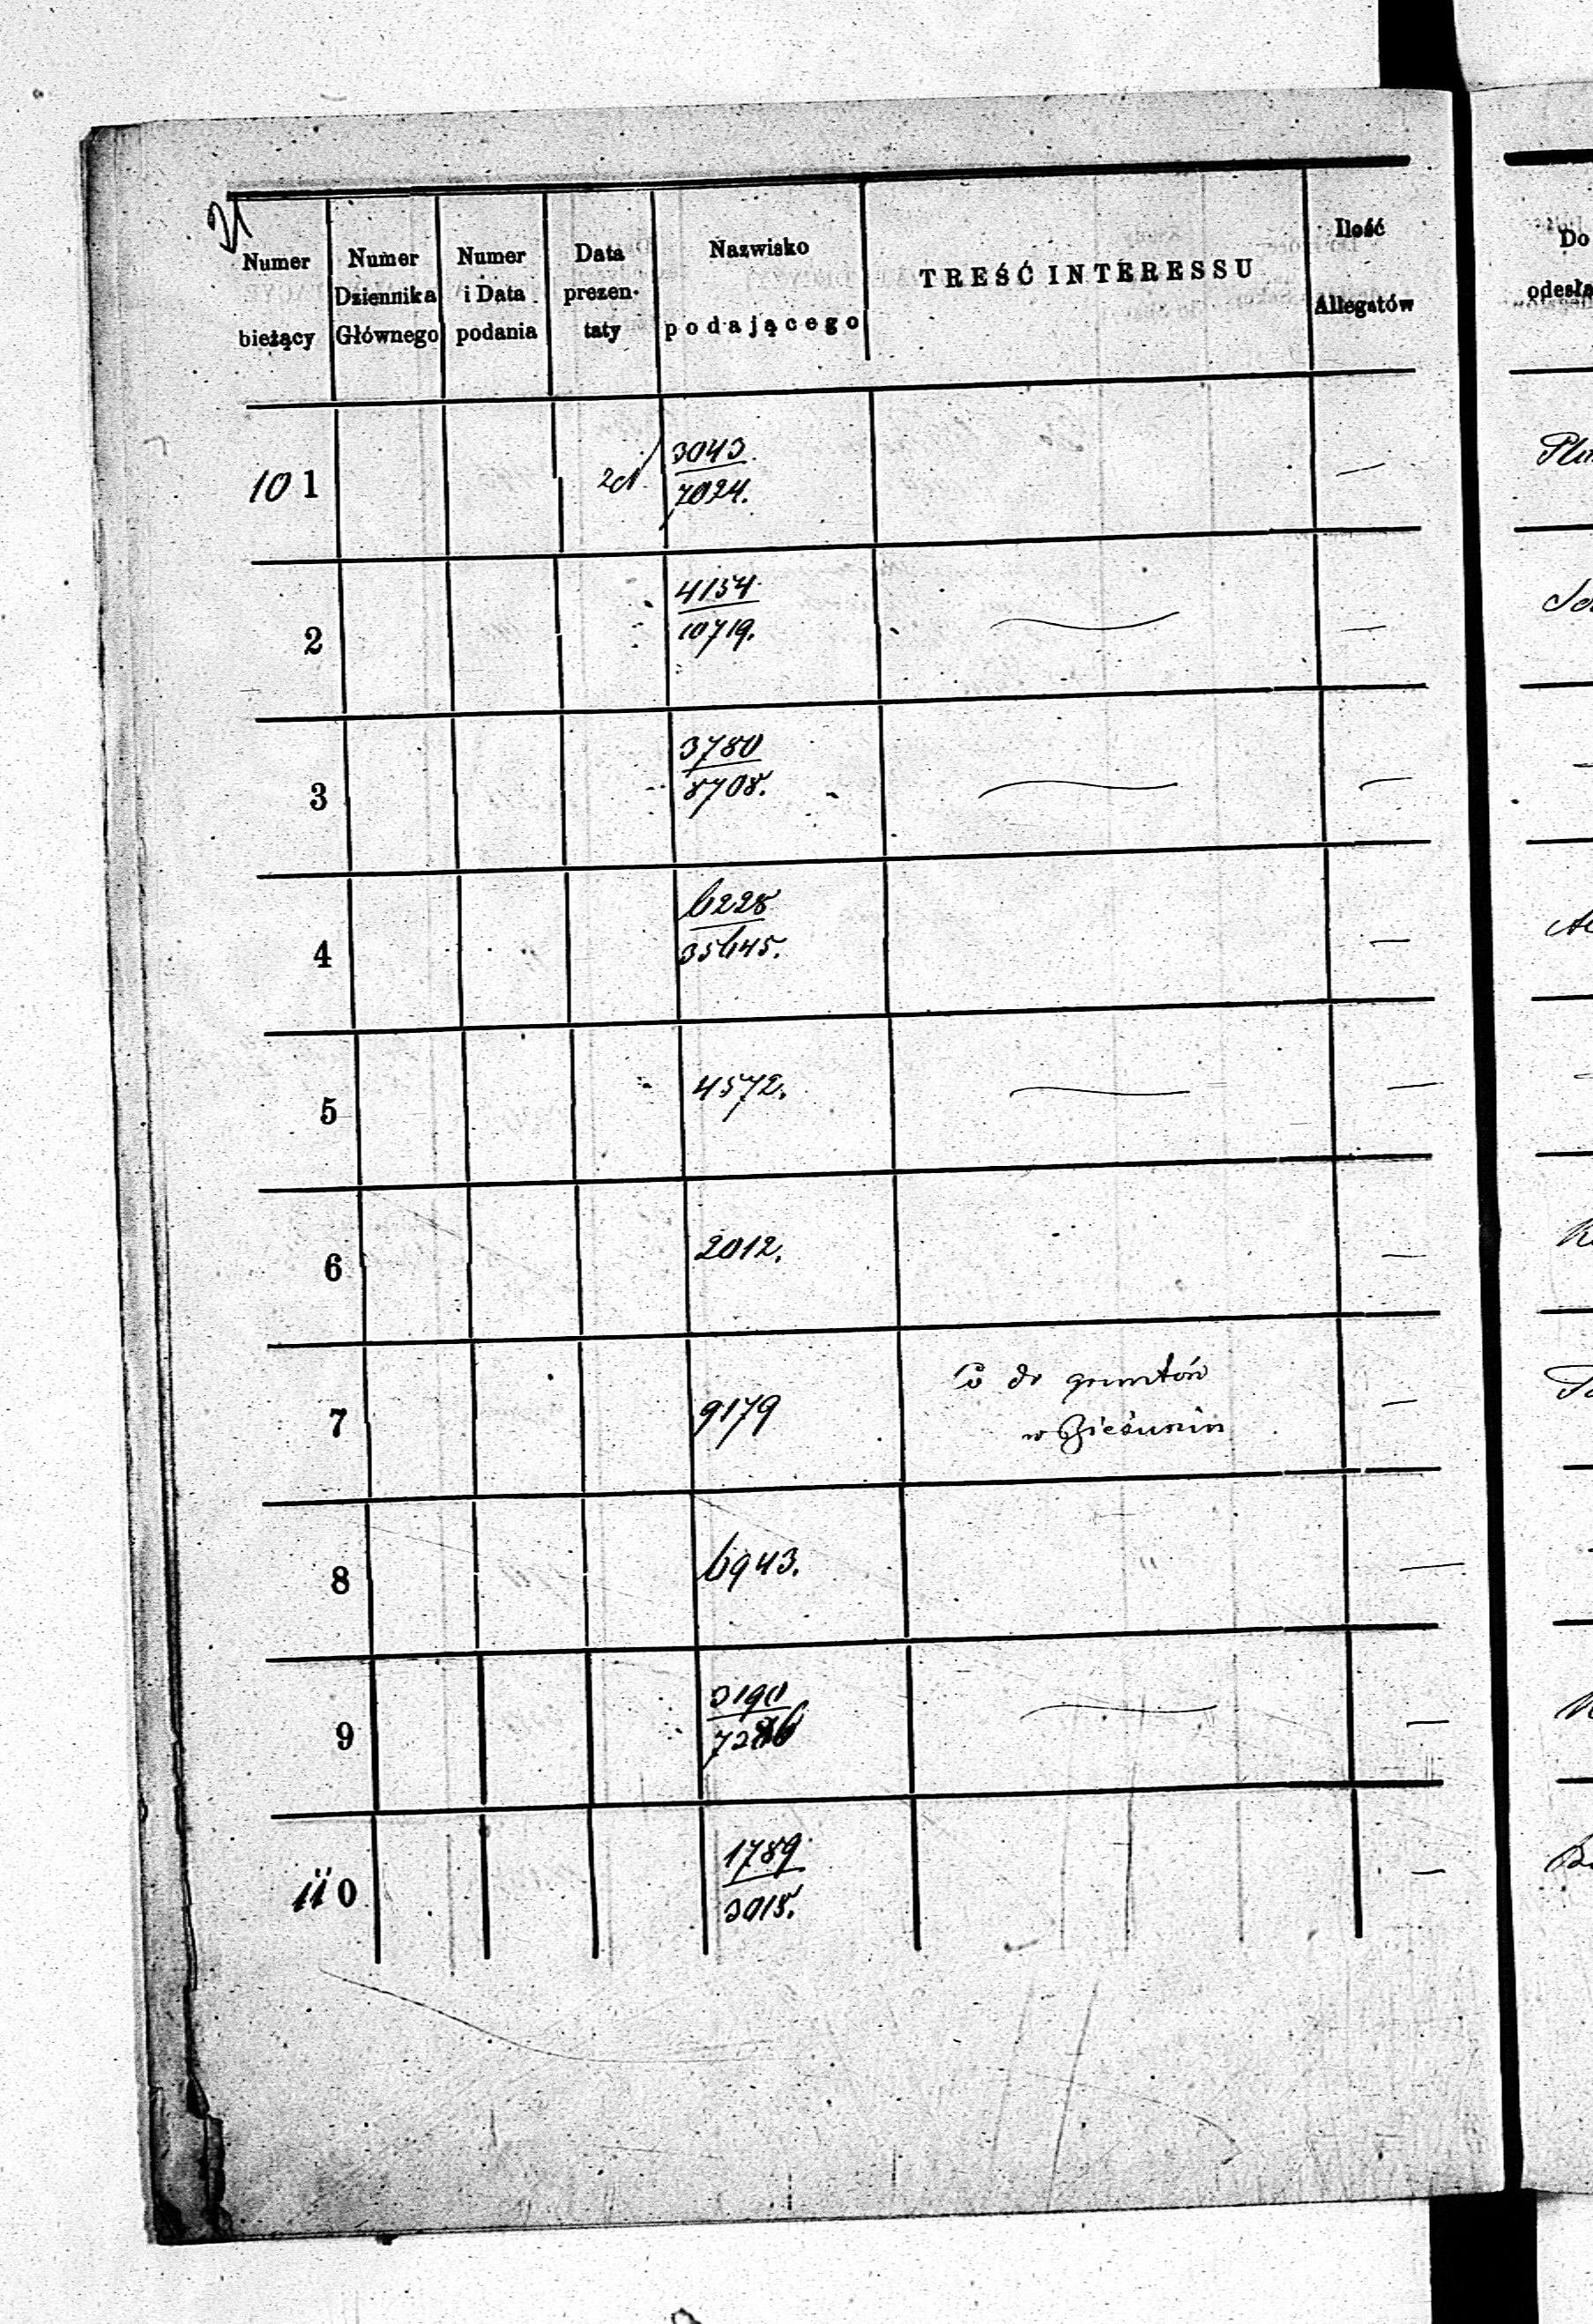 Numer bieżący
Numer Dziennika Głównego
Numer i Data podania
Data prezen- taty
Nazwisko podającego
TREŚĆ INTERESSU
Ilość Allegatów
Do
odesła
101
3043
7024.
2
4154
10719.
3
3780
8708.
4
6228
35645.
5
4572.
6
2012.
7
9179
Co do gruntów
w
8
6943.
9
3190
110
1789
3018.